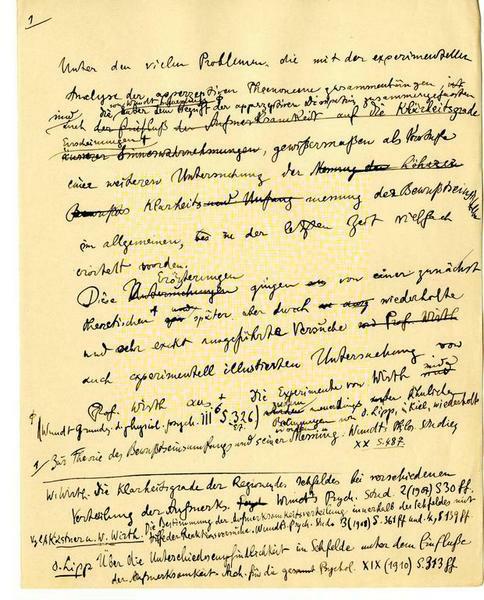 1
Unter den vielen Problemen, die mit der experimentellen
Analyse der apperzeptiven Phänomene zusammenhängen ist
sind, die unter dem Begriff der apperzeptiven zusammengefassten
auch der Einfluß der Aufmerksamkeit auf die Klarheitsgrade
Erscheinungen
unserer Sinneswahrnehmungen, gewissermaßen als Vorstufe
einer weiteren Untersuchung der Messung der Höhe
Klarheits und Umfang messung des Bewußtseins
im allgemeinen, in der letzten Zeit vielfach
erörtert worden.
Erörterungen
Diese Untersuchungen gingen von einer zunächst
theoretischen und später aber durch wiederholte
und sehr exakt ausgeführte Versuche Prof. Wirth
auch experimentell illustrierten Untersuchung von
Prof. Wirth aus. Die Experimente von Wirth sind
(Wundt Grundz. d. physiol. Psych. III S. 326) neuerdings von ähnlicher
O. Lipp, Kiel, wiederholt
1) Zur Theorie des Bewußtseinsumfangs und seiner Messung. Wundt Philos. Studien
XX S. 487.
W. Wirth. Die Klarheitsgrade der Regionen des Sehfeldes bei verschiedenen
Verteilung der Aufmerks. Wundts Psych. Stud. 2 (1907) S 30 ff.
Kästner u. W. Wirth. Die Bestimmung der Aufmerksamkeitsverteilung innerhalb des Sehfeldes mit
Hilfe der Reaktionsversuche. Wundt. Psych. Stud. 3 (1908) S. 361 ff und 4, S 139 ff
O. Lipp Über die Unterschiedsempfindlichkeit im Sehfelde unter dem Einflusse
der Aufmerksamkeit Arch. für die gesamt Psychol. XIX (1910) S. 313 ff